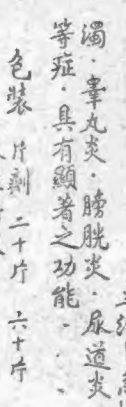 濁．睾丸炎．膀胱炎．尿道炎
等症．具有顯著之功能．
色裝 片劑 二十片 六十片